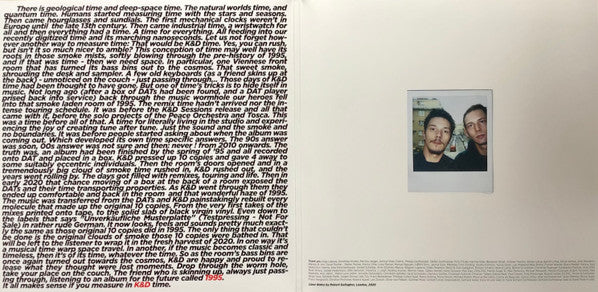 There is geological time and deep-space time. The natural worlds time, and
quantum time. Humans started measuring time with the stars and seasons.
Then came hourglasses and sundials. The first mechanical clocks weren't in
Europe until the late 13th century. Then came industrial time, a wristwatch for
all and then everything had a time. A time for everything. All feeding into our
recently digitized time and its marching nanoseconds. Let us not forget how-
ever another way to measure time: That would be K&D time. Yes, you can rush,
but isn't it so much nicer to amble? This conception of time may well have its
roots in those smoke mists, softly blowing through the pre-history of 1995
and if that was time - then we need space. In particular, one Viennese front
room that has turned its bass bins out to the cosmos. That sweet smoke,
shrouding the desk and sampler. A few old keyboards (as a friend skins up at
the back) - unnoticed on the couch - just passing through... Those days of K&D
time had been thought to have gone. But one of time's tricks is to hide itself in
music. Not long ago (after a box of DATs had been found, and a DAT player
prised back into service) back through the music wormhole our heroes fell
into that smoke laden room of 1995. The remix time hadn't arrived nor the in-
tense touring schedule. It was before the K&D Sessions release and all that
came with it, before the solo projects of the Peace Orchestra and Tosca. This
was a time before all of that. A time for literally living in the studio and experi-
encing the joy of creating tune after tune. Just the sound and the smoke and
no boundaries. It was before people started asking about when the album was
coming out, Which developed its own time specific answers. The 90s answer
was soon, 00s answer was not sure and then: never! from 2010 onwards. The
truth is: an album had been finished by the spring of '95 and all recorded
onto DAT and placed in a box. K&D pressed up 10 copies and gave 4 away to
some suitably eccentric individuals. Then the room's doors opened and in a
tremendously big cloud of smoke time rushed in, K&D rushed out, and the
years went rolling by. The days got filled with remixes, touring and life. Then in
early 2020 that chance moving of a box at the back of a room exposed the
DATs and their time transporting properties. As K&D went through them they
ended up comfortable and back in the room and that wonderful haze of 1995.
The music was transferred from the DATs and K&D painstakingly rebuilt every
molecule that made up the original 10 copies. From the very first takes of the
mixes printed onto tape, to the solid slab of black virgin vinyl. Even down to
the labels that says "Unverkäufliche Musterplatte" (Testpressing - Not For
Sale) in rather rude German. It now looks, feels and sounds pretty much exact-
ly the same as those original 10 copies did in 1995. The only thing that couldn't
be done is the original clouds of smoke those 10 copies were bathed in. That
will be left to the listener to wrap it in the fresh harvest of 2020. In one way it's
a musical time warp space travel. In another, if the music becomes classic and
timeless, then it's of its time, whatever the time. So as the room's bass bins are
once again turned out towards the cosmos, K&D are happy and proud to re-
lease what they thought were lost moments. Drop through the worm hole,
take your place on the couch. The friend who is skinning up, always just pass-
ing through, listening to an album for the future called 1995.
It all makes sense if you measure in K&D time.